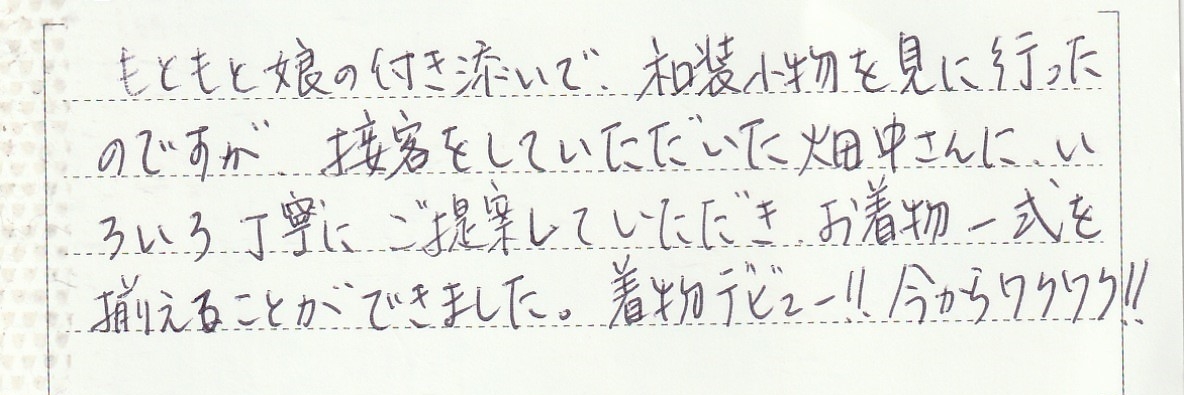 もともと娘の付き添いで、和装小物を見に行った
のですが、接客をしていただいた畑中さんに、い
ろいろ丁寧にご提案していただき、お着物一式を
揃えることができました。着物デビュー!!今からワクワク!!